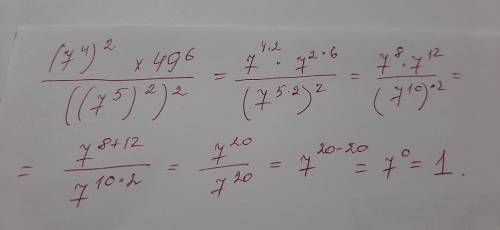 (7^4)^2 × 49^6 / ((7^5)^2)^2 = 7^{4·2} · 7^{2·6} / (7^{5·2})^2 = 7^8 · 7^{12} / (7^{10})^{·2} =
= 7^{8+12} / 7^{10·2} = 7^{20} / 7^{20} = 7^{20-20} = 7^0 = 1.